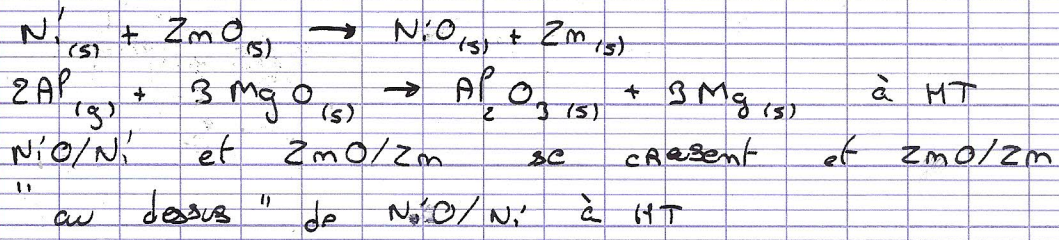 Ni(s) + ZnO(s) → NiO(s) + Zn(s)
2Al(g) + 3MgO(s) → Al2O3(s) + 3Mg(s) à HT
NiO/Ni et ZnO/Zn se croisent et ZnO/Zn
"au dessus" de NiO/Ni à HT